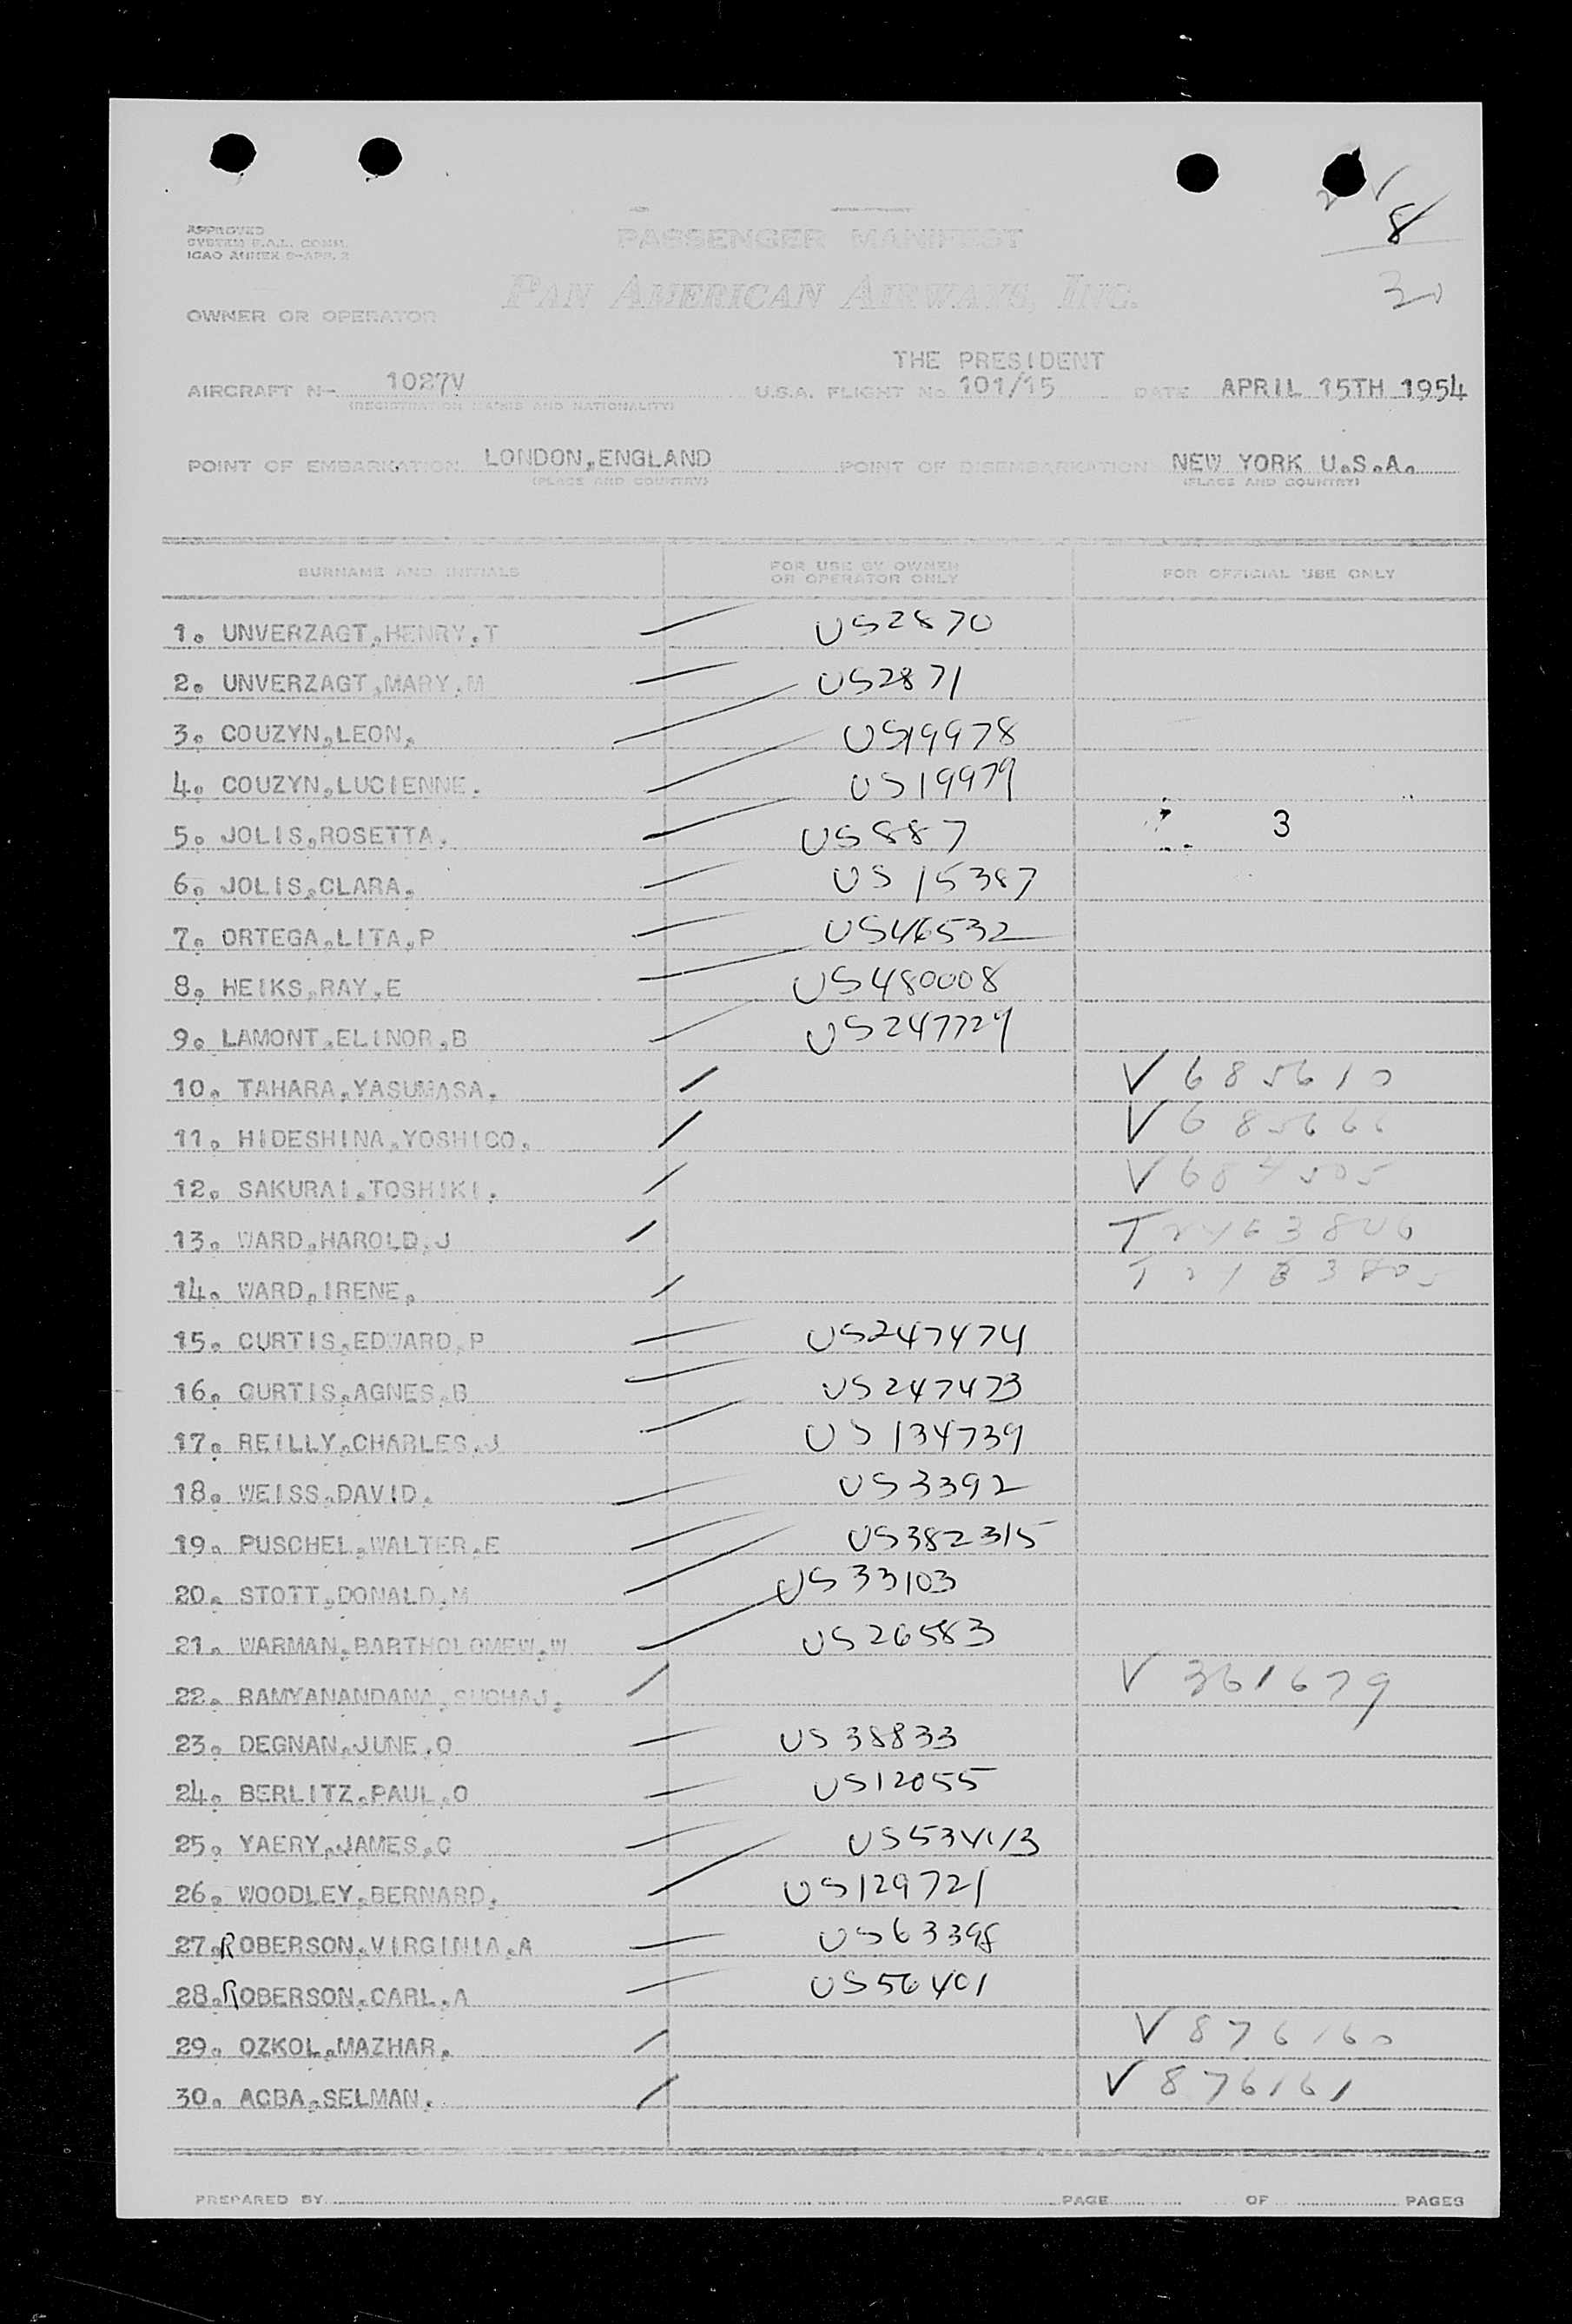 APPROVED
SYSTEM F.A.L. COMM.
ICAO ANNEX 9-APP. 2
PASSENGER MANIFEST
8
PAN AMERICAN AIRWAYS, INC.
OWNER OR OPERATOR
THE PRESIDENT
AIRCRAFT N- 1027V U.S.A. FLIGHT No 101/15 DATE APRIL 15TH 1954
(REGISTRATION MARKS AND NATIONALITY)
POINT OF EMBARKATION LONDON,ENGLAND POINT OF DISEMBARKATION NEW YORK U.S.A.
(PLACE AND COUNTRY) (PLACE AND COUNTRY)
SURNAME AND INITIALS FOR USE BY OWNER OR OPERATOR ONLY FOR OFFICIAL USE ONLY
1. UNVERZAGT,HENRY.T US2870
2. UNVERZAGT,MARY.M US2871
3. COUZYN,LEON. US19978
4. COUZYN,LUCIENNE. US19979
5. JOLIS,ROSETTA. US887 3
6. JOLIS,CLARA. US15387
7. ORTEGA,LITA.P US46532
8. HEIKS,RAY.E US480008
9. LAMONT,ELINOR.B US247729
10. TAHARA,YASUMASA. V685610
11. HIDESHINA,YOSHICO. V685666
12. SAKURAI,TOSHIKI.
13. WARD,HAROLD.J
14. WARD,IRENE.
15. CURTIS,EDWARD.P US247474
16. CURTIS,AGNES.B US247473
17. REILLY,CHARLES.J US134739
18. WEISS,DAVID. US3392
19. PUSCHEL,WALTER.E US382315
20. STOTT,DONALD.M US33103
21. WARMAN,BARTHOLOMEW.W US26583
22. RAMYANANDANA,SUCHAJ. V361679
23. DEGNAN,JUNE.O US38833
24. BERLITZ,PAUL.O US12055
25. YAERY,JAMES.C US534113
26. WOODLEY,BERNARD. US129721
27. ROBERSON,VIRGINIA.A US63398
28. ROBERSON,CARL.A US56401
29. OZKOL,MAZHAR. V876160
30. AGBA,SELMAN. V876161
PREPARED BY PAGE OF PAGES